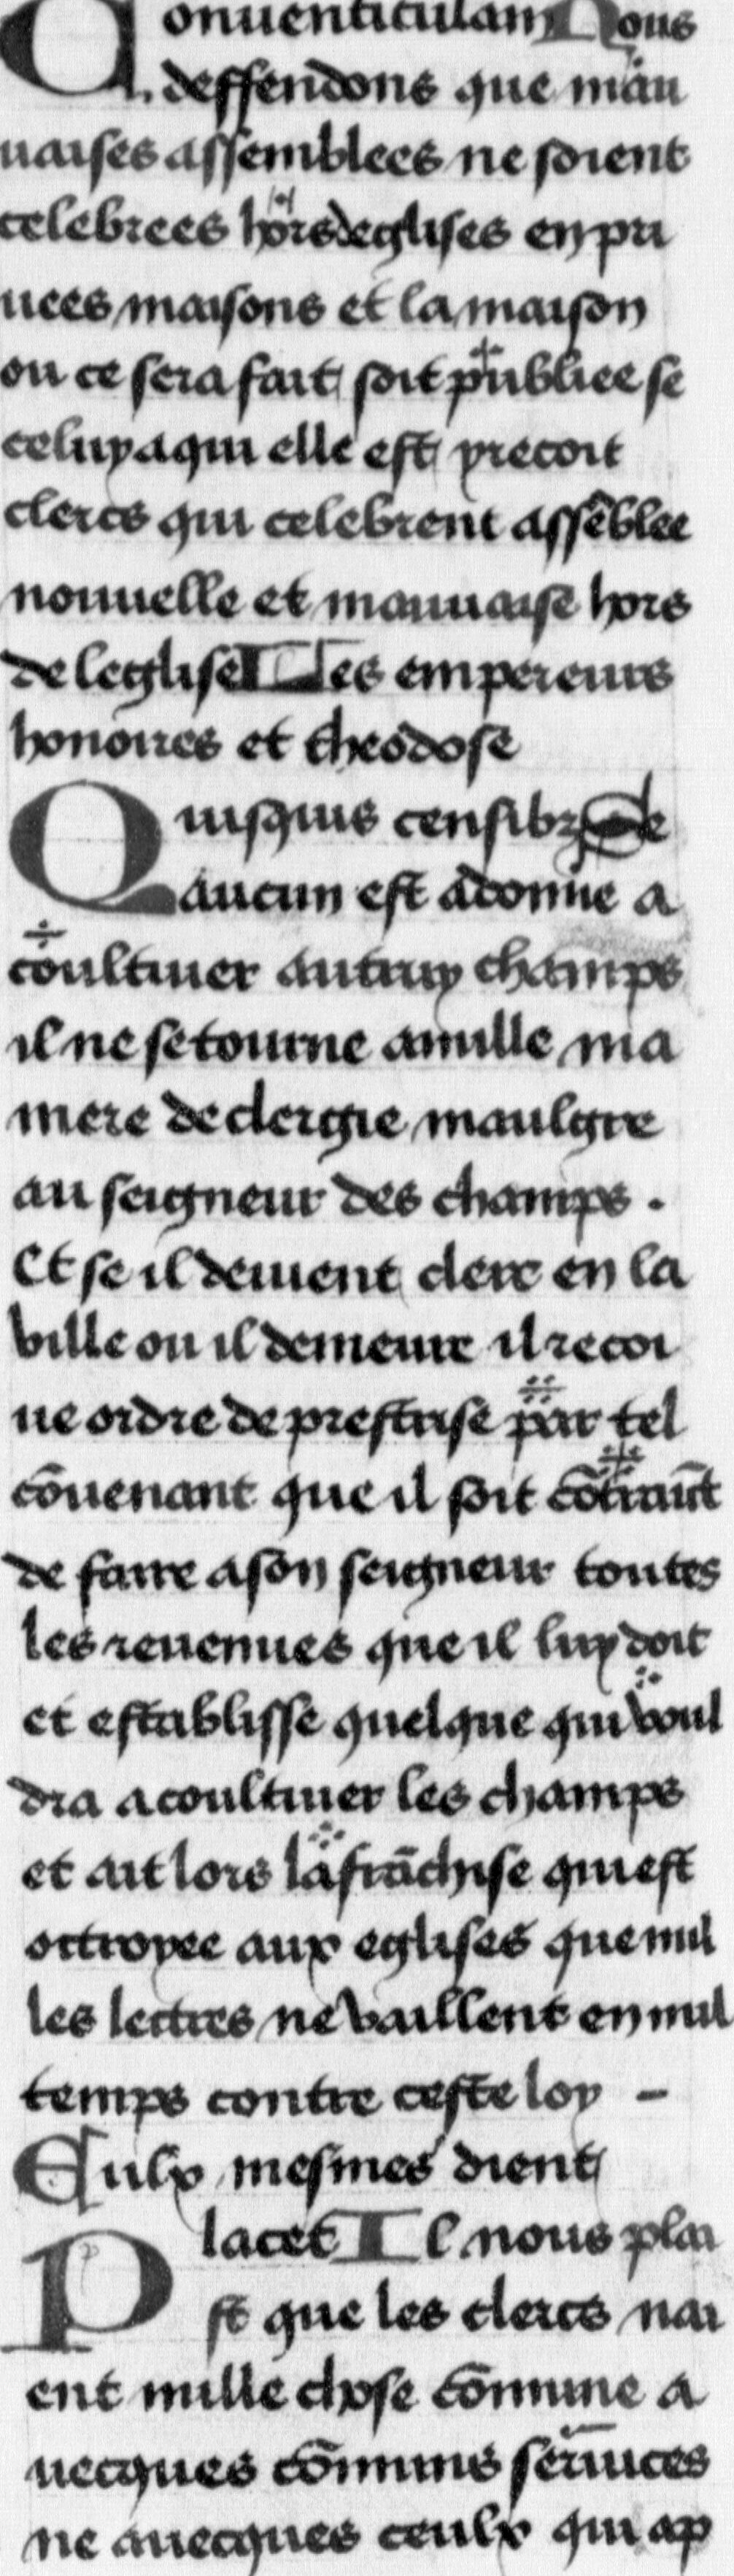 Conuenticulam Nous
deffendons que mau
uaises assemblees ne soient
celebrees hors deglises en pri
uees maisons et la maison
ou ce sera fait soit publiee se
celuy a qui elle est y recoit
clercs qui celebrent assẽblee
nouuelle et mauuaise hors
de leglise Les empereurs
honoires et theodose
Quisquis censibz Se
aucun est adonne a
coultiuer autruy champs
il ne se tourne a nulle ma
niere de clergie maulgre
au seigneur des champs .
Et se il deuient clerc en la
ville ou il demeure il recoi
ue ordre de prestrise par tel
cõuenant que il soit cõtraint
de faire a son seigneur toutes
les reuenues que il luy doit
et establisse quelque qui voul
dra a coultiuer les champs
et ait lors la frãchise qui est
octroyee aux eglises que nul
les lectres ne vaillent en nul
temps contre ceste loy -
Eulx mesmes dient
Placet Il nous plai
st que les clercs nai
ent nulle chose cõmune a
uecques cõmuns seruices
ne auecques ceulx qui ap